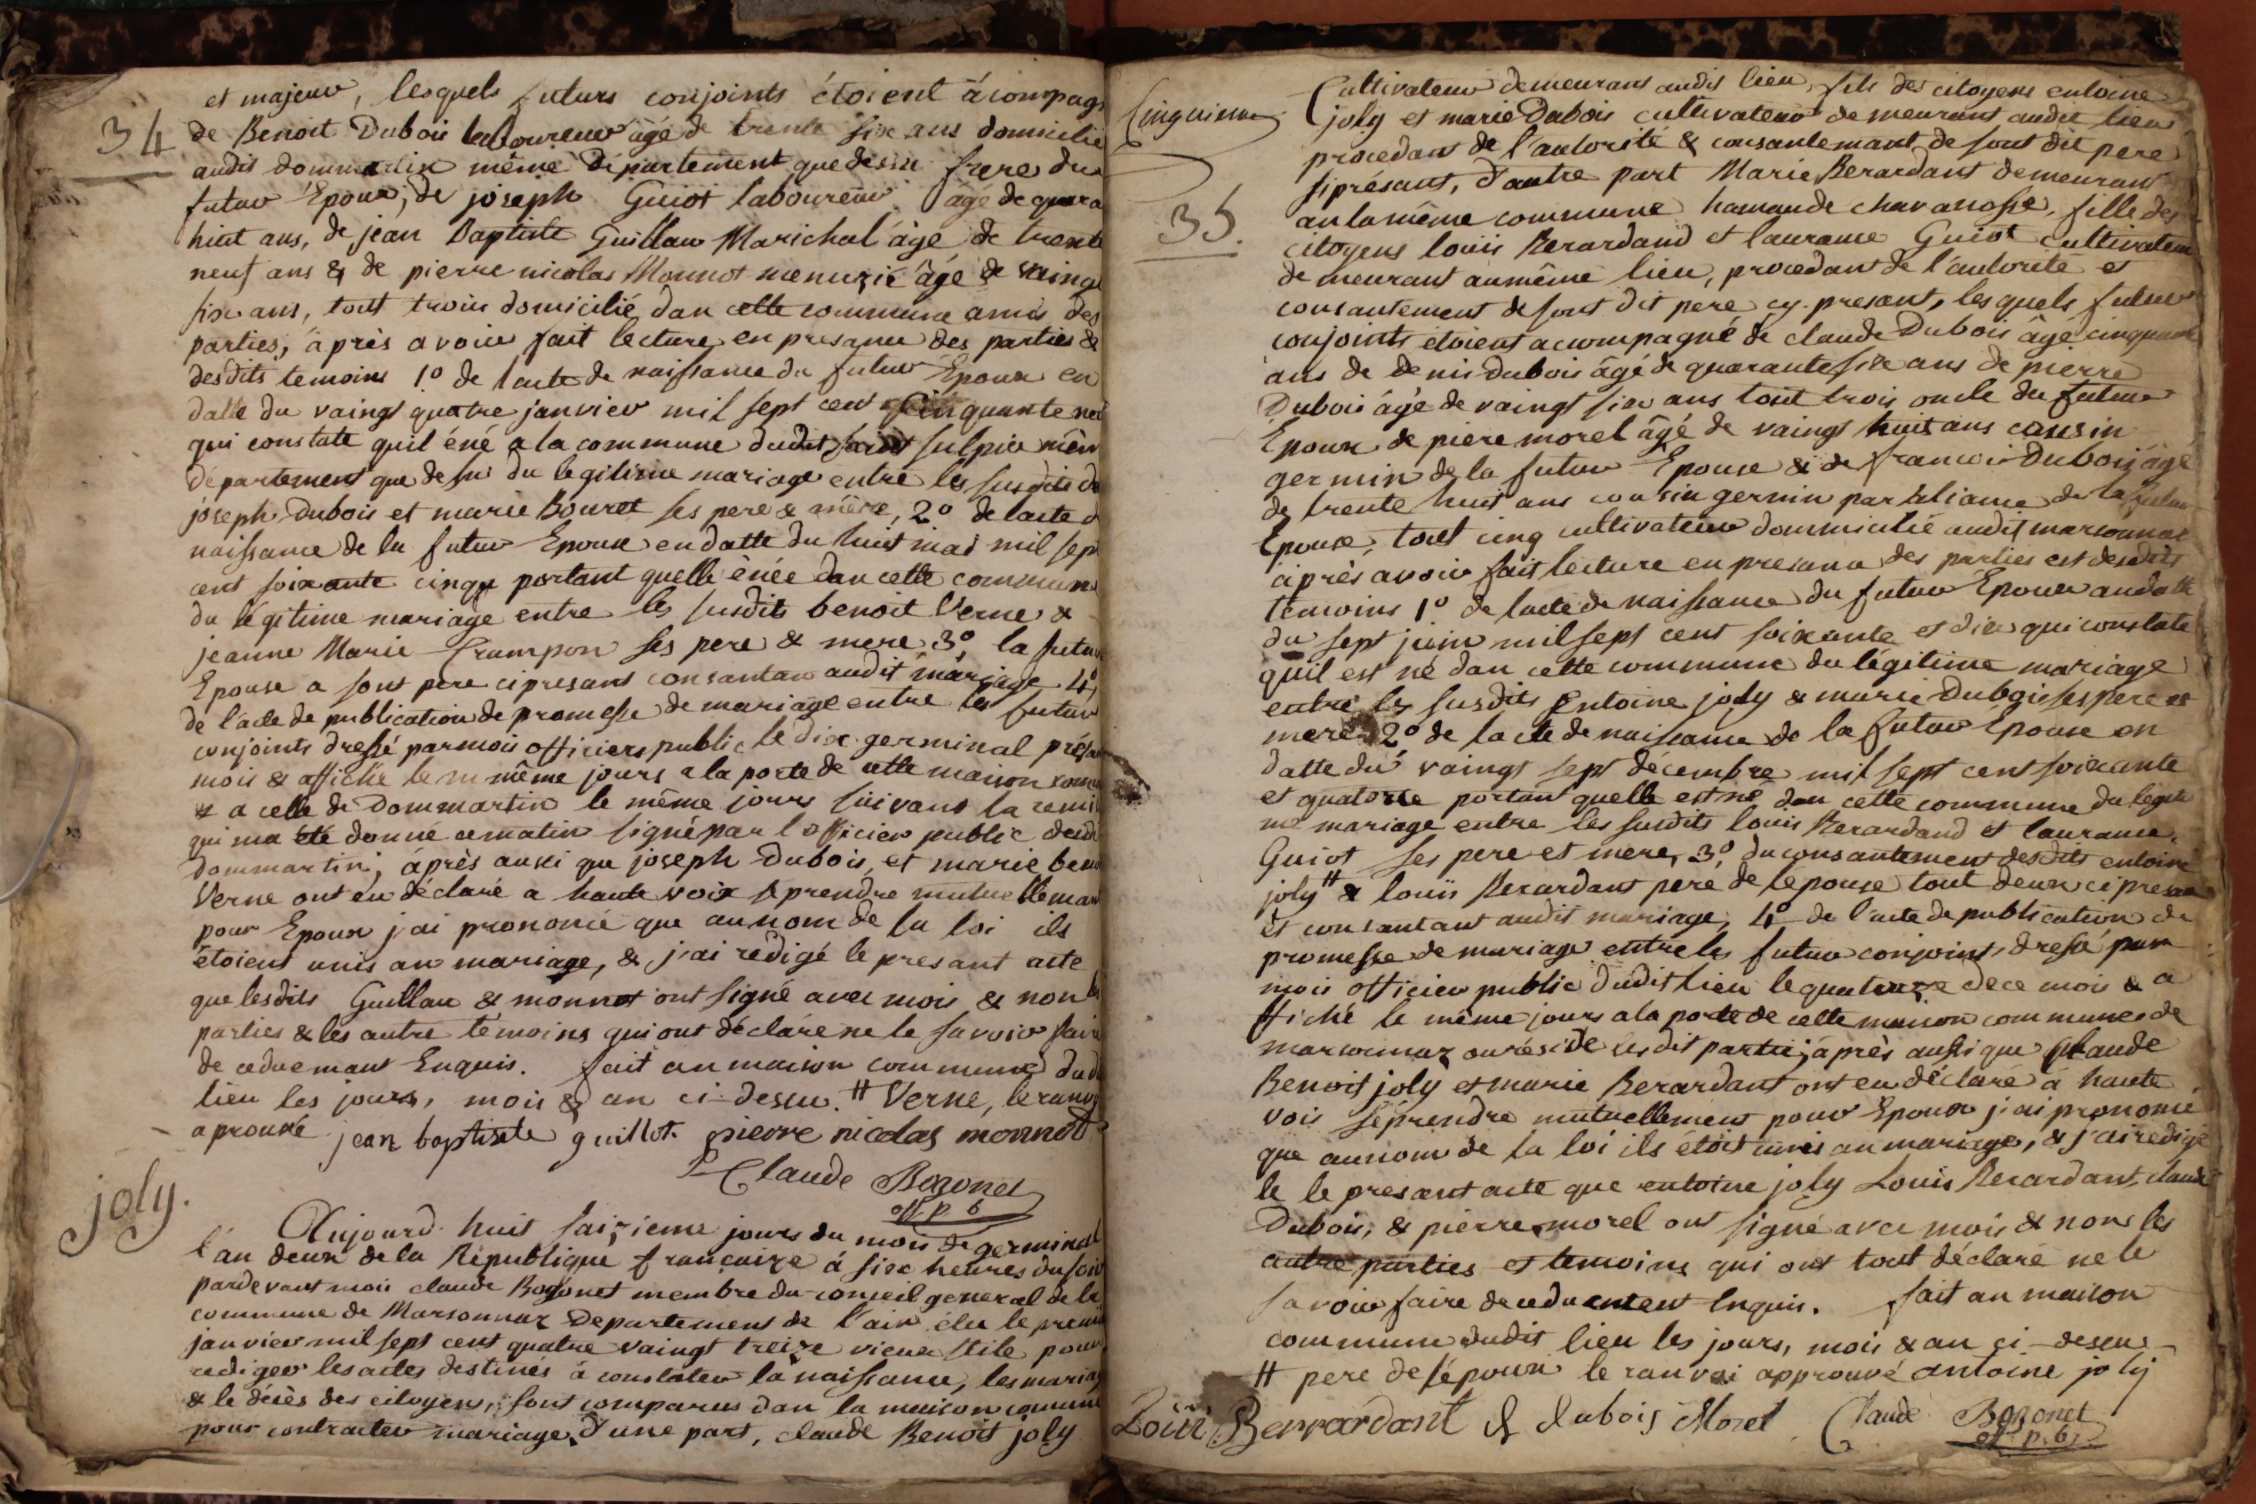 34
et majeur, lesquels futurs conjoints étoient àcompag
de Benoit Dubois laboureur âgé de trente six ans domicilié
audit dommartin même département que desu frere du
futur Epoux, de joseph Guiot laboureur âgé de quara
huit ans, de jean Baptiste Guillau Marichal âgé de trente
neuf ans & de pierre nicolas Monnot menuzié âgé de vaingt
six ans, tout trois domicilié dan cette commune amis des
parties, àprès avoir fait lecture en presance des parties &
desdits temoins 1o de lacte de naissance du futur Epoux en
datte du vaingt quatre janvier mil sept cent cinquante neu
qui constate quil éné a la commune dudit saint sulpice mêm
département que desu du legitime mariage entre les susdits
joseph Dubois et marie Bouret ses pere & mère, 2o de lacte d
naissance de la futur Epoux en datte du huit mai mil sept
cent soixante cinq portant quelle énée dan cette commune
du légitime mariage entre les susdits benoit Verne &
jeanne Marie Crampon ses pere & mere 3o, la futur
Epouse a sont père cipresant consantan audit mariage 4o
de l'acte de publication de promesse de mariage entre les futur
conjoints dressé parmoi officiers public le dix germinal présa
mois & affiché le même jours a la porte de cette maison comm
& a celle de Dommartin le même jours suivant la remi
qui ma été donne cematin signé par lofficier public dudi
dommartin; àprès aussi que joseph Dubois, et marie ben
Verne ont eu déclaré a haute voix se prendre mutuellemant
pour Epoux j'ai prononcé que aunom de la loi ils
étoient unis an mariage, & j'ai rédigé le presant acte
que lesdits Guillau & monnot ont signé avec mois & non les
parties & les autre témoins qui ont déclaré ne le savoir faire
de ceduemant Enquis. fait an maison commune dud
lieu les jours, mois & an ci-dessu. # Verne, leranv
aprouvé jean baptiste guillot. pierre nicolas monnot
Claude Bozonet
off. p. b
joly.
Aujourd. huit saizieme jours du mois de germinal
l'an deux de la République françaize à six heures du soir
pardevant moi claude Bozonet membre du conseil general de la
commune de Marsonnaz Departement de l'ain élu le premier
janvier mil sept cent quatre vaingt treize vieux stile pour
redigev les actes destinés à constatev la naissance, les mariag
& le décès des citoyens, sont comparus dan la maison commune
pour contracter mariage, d'une part, claude Benoit joly
Cinquième
35.
Cultivateur demeurans audis lieu, fils des citoyens entoine
joly et marie Dubois cultivateur demeurant audit lieu
procedant de l'autorité & consantemant de sont dit pere
siprésant, d'autre part Marie Berardant demeurant
an la même commune hamau de chavanosse, fille des
citoyens louis Berardand et laurance Guiot cultivateur
demeurant aumême lieu, procedant de l'autorité et
consantement de sont dit pere cy-present, lesquels futur
conjoints étoient acompagné de claude Dubois âgé cinquante
ans de denis Dubois âgé de quarante six ans de pierre
Dubois âgé de vaingt six ans tout trois oncle du futur
Epoux de piere morel âgé de vaingt huit ans cousin
germin de la futur Epouse & de francois Dubois âgé
de trente huit ans cousin germin par aliance de la futur
Epouse, tout cinq cultivateur dommicilié audit marsonnaz
àprès avoir fait lecture en presance des parties est desdits
témoins 1o de lacte de naissance du futur Epoux andatte
du sept juin mil sept cent soixante et dix qui constate
quil est né dan cette commune du légitime mariage
entre les susdits Entoine joly & marie Dubois ses pere et
mere 2o de lacte de naissance de la futur Epouse en
datte du vaingt sept décembre mil sept cent soixante
et quatorze portant quelle est né dan cette commune du legiti
me mariage entre les susdits louis Berardand et laurance
Guiot ses pere et mere, 3o, du consantement desdits entoine
joly # & louis Berardant pere de lepouse tout deux cipresant
et consantant audit mariage, 4o de l'acte de publication de
promesse de mariage entre les futur conjoint, dressé par
mois officier public dudit lieu le quatorze de ce mois & a
ffiché le même jours a la porte de cette maison commune de
marsonnaz ou réside lesdit partie; àprès aussi que Claude
Benoit joly et marie Berardant ont eu déclaré à haute
vois seprendre mutuellement pour Epoux j'ai prononcé
que aunom de la loi ils étoit unis an mariage, & j'ai redigé
le le presant acte que entoine joly Louis Berardant, claude
Dubois, & pierre morel ont signé avec mois & nons les
autre parties et temoins qui ont tout déclaré ne le
savoir faire de ceduement Enquis. fait an maison
commune dudit lieu les jours, mois & an ci-dessu
# pere de lépoux le ranvoi approuvé antoine joly
Loüi Berrardant C dubois Morel Claude Bozonet
off. p. b.